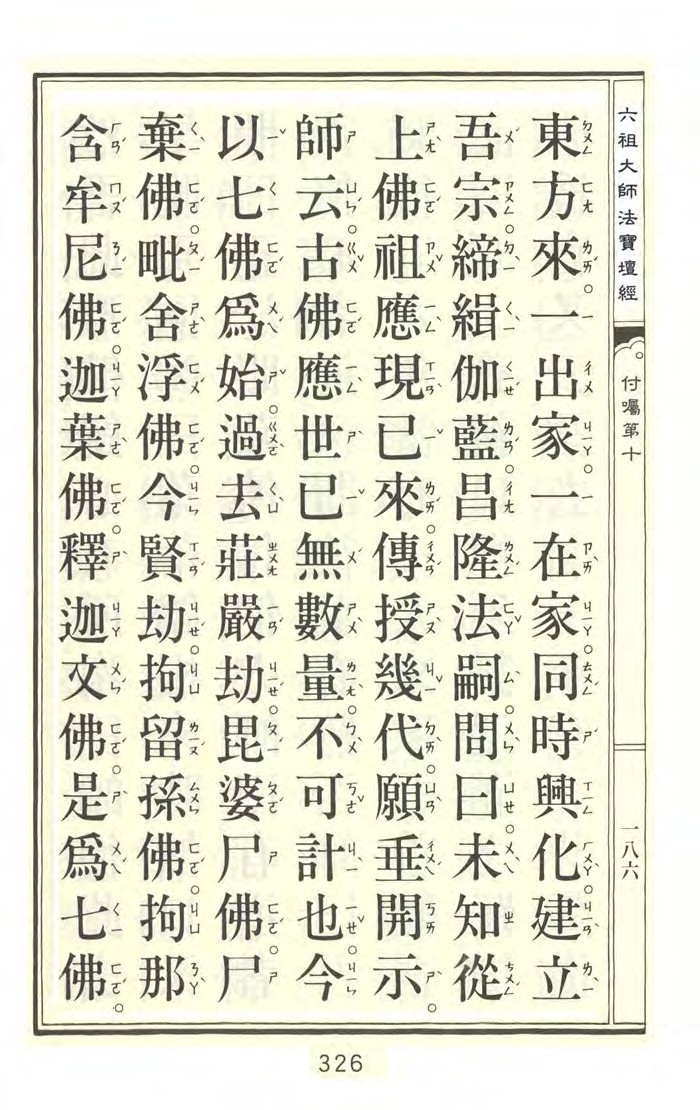 六祖大師法寶壇經　付囑第十　一八六
東方來。一出家。一在家同時興化。建立
吾宗。締緝伽藍。昌隆法嗣。問曰。未知從
上佛祖應現已來。傳授幾代。願垂開示。
師云。古佛應世已無數量。不可計也。今
以七佛爲始。過去莊嚴劫。毘婆尸佛。尸
棄佛。毗舍浮佛。今賢劫。拘留孫佛。拘那
含牟尼佛。迦葉佛。釋迦文佛。是爲七佛。
326